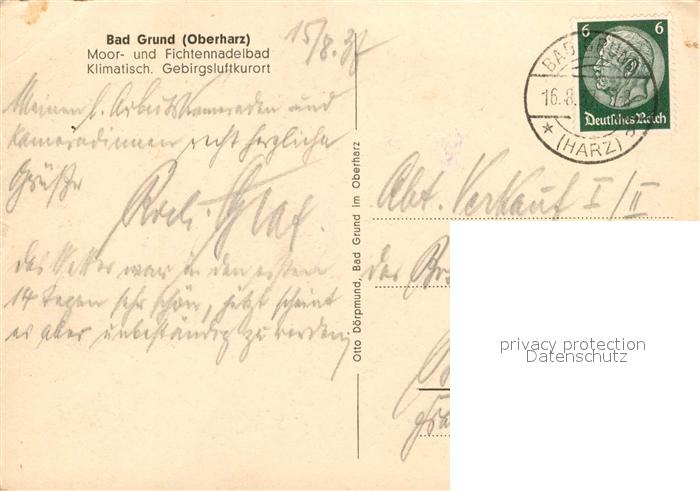 Bad Grund (Oberharz)
Moor- und Fichtennadelbad
Klimatisch. Gebirgsluftkurort
15/8.37
Meinen l. Arbeitskameraden und
Kameradinnen recht herzliche
Grüße
Graf.
Das Wetter war in den ersten
14 Tagen sehr schön, jetzt scheint
es aber unbeständig zu werden
Otto Dörpmund, Bad Grund im Oberharz
6 6
Deutsches Reich
BAD GRUND
16.8.
(HARZ)
Abt. Verkauf I/II
der
privacy protection
Datenschutz